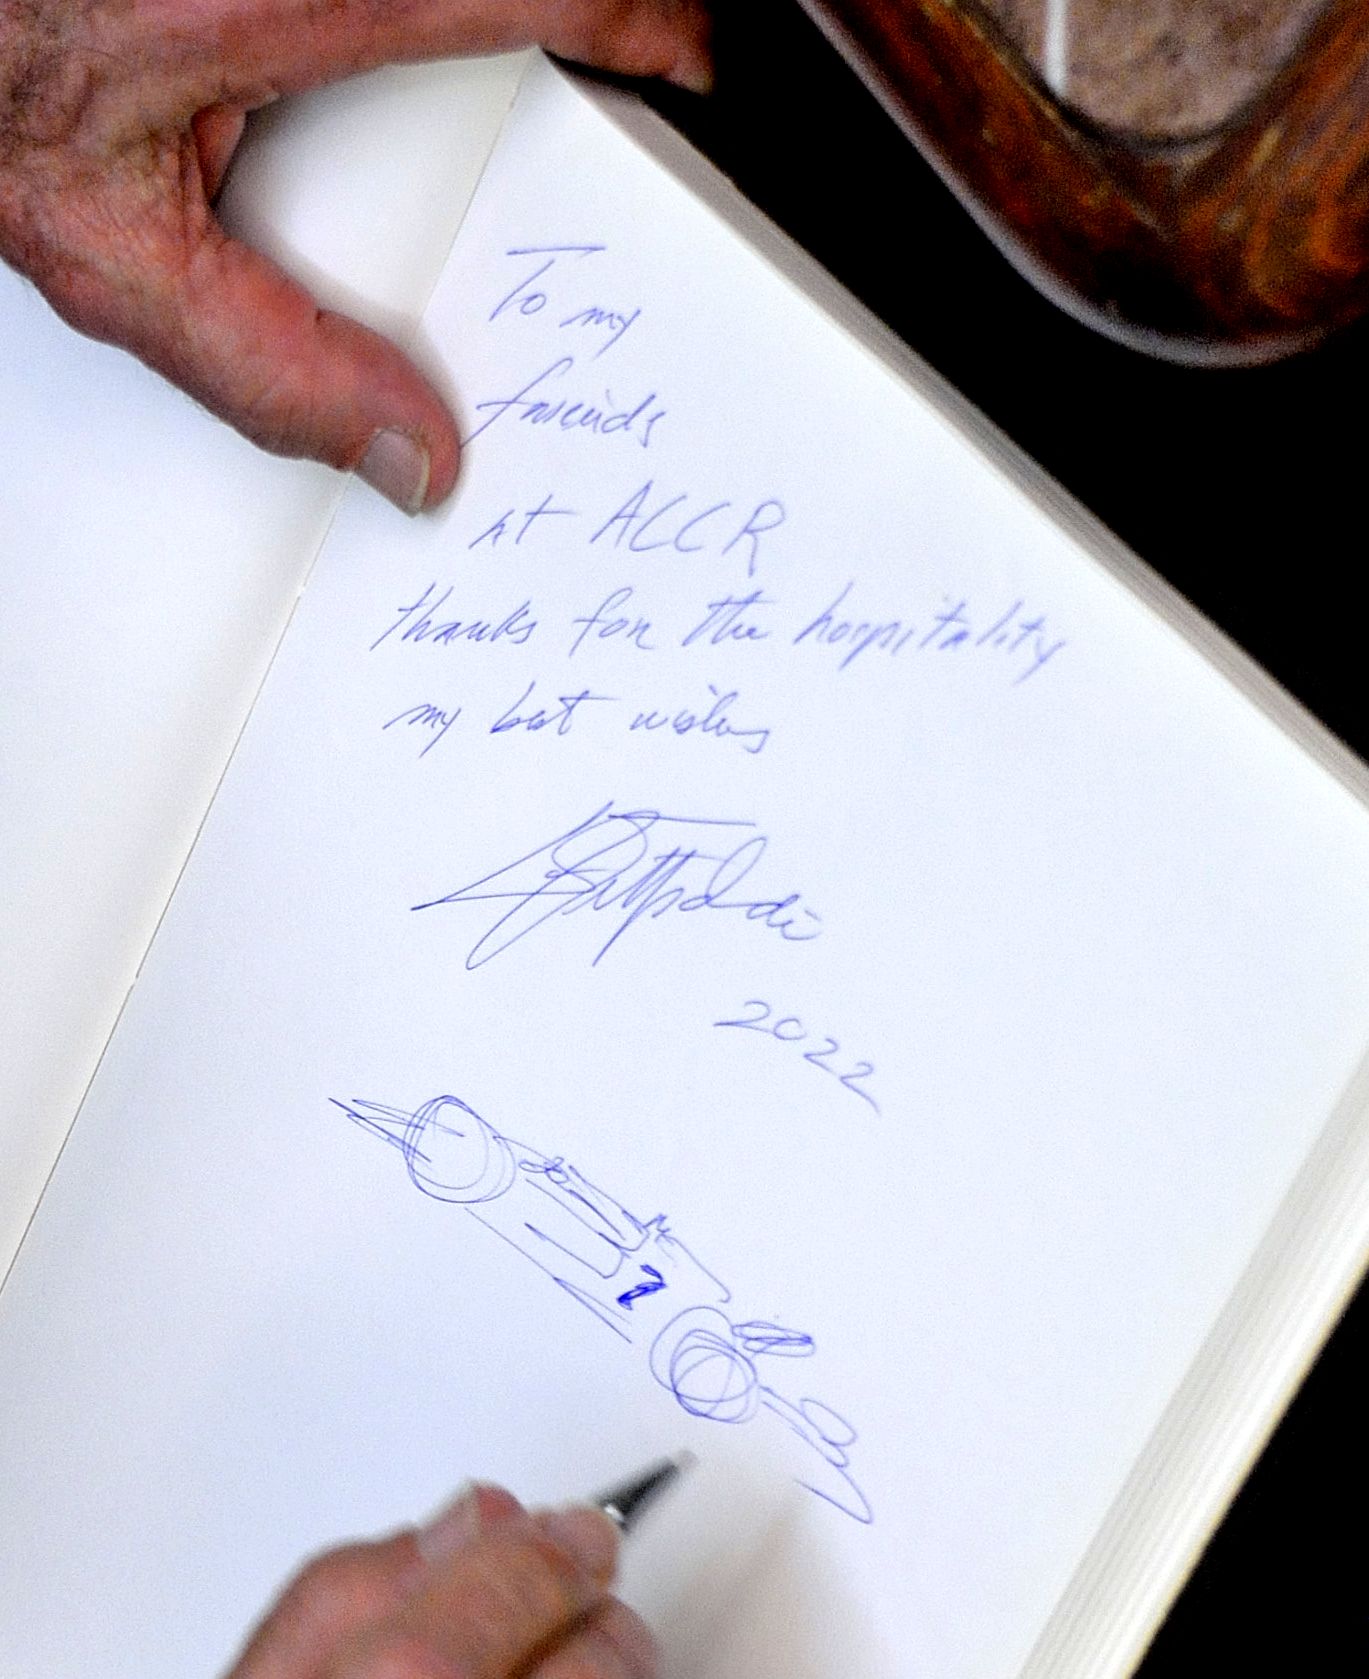 To my
freinds
at ACCR
thanks for the hospitality
my best wishes
EFittipaldi
2022
7